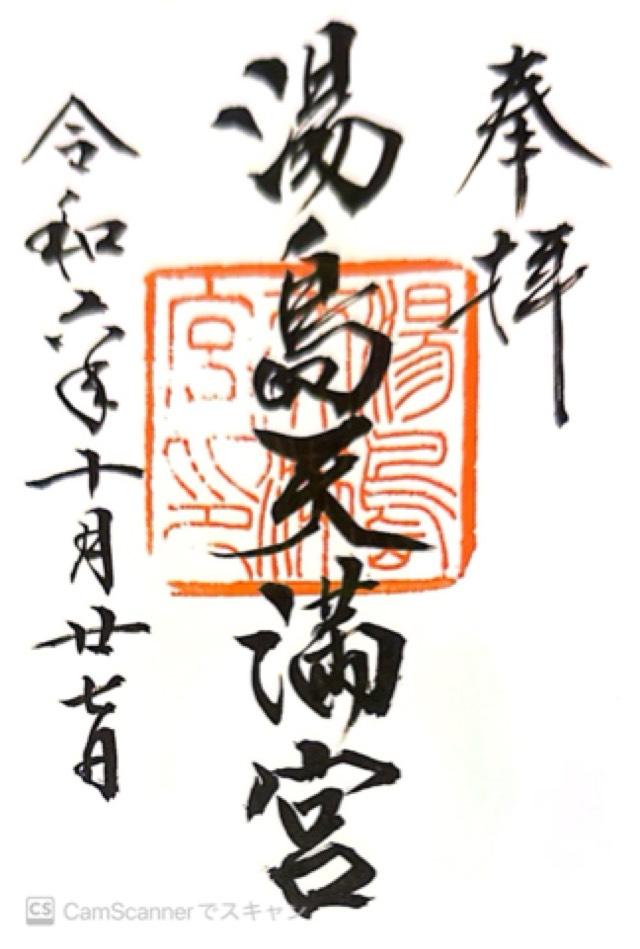 奉拝
湯島天満宮
湯島天満宮之印
令和六年十月廿七日
CS CamScannerでスキャン